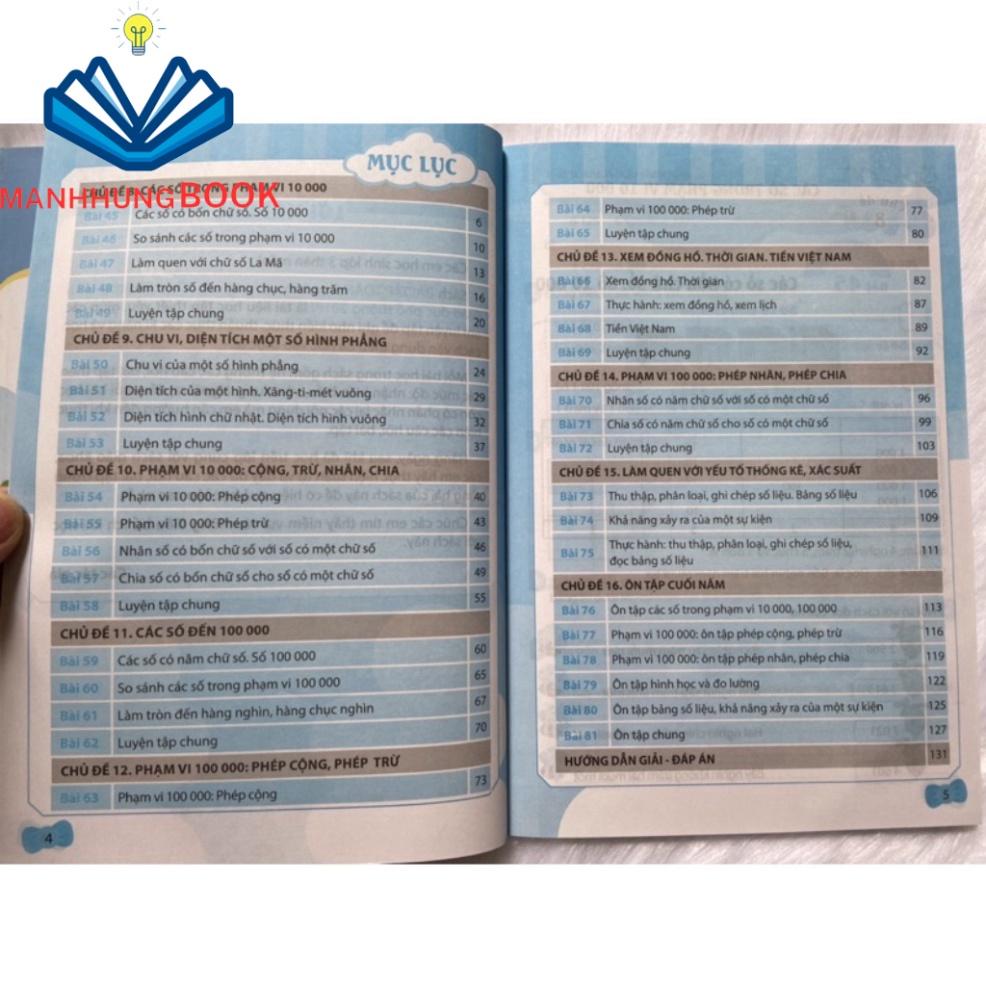 MANHHUNGBOOK
MỤC LỤC
CHỦ ĐỀ 8. CÁC SỐ TRONG PHẠM VI 10 000
Bài 45 Các số có bốn chữ số. Số 10 000 6
Bài 46 So sánh các số trong phạm vi 10 000 10
Bài 47 Làm quen với chữ số La Mã 13
Bài 48 Làm tròn số đến hàng chục, hàng trăm 16
Bài 49 Luyện tập chung 20
CHỦ ĐỀ 9. CHU VI, DIỆN TÍCH MỘT SỐ HÌNH PHẲNG
Bài 50 Chu vi của một số hình phẳng 24
Bài 51 Diện tích của một hình. Xăng-ti-mét vuông 29
Bài 52 Diện tích hình chữ nhật. Diện tích hình vuông 32
Bài 53 Luyện tập chung 37
CHỦ ĐỀ 10. PHẠM VI 10 000: CỘNG, TRỪ, NHÂN, CHIA
Bài 54 Phạm vi 10 000: Phép cộng 40
Bài 55 Phạm vi 10 000: Phép trừ 43
Bài 56 Nhân số có bốn chữ số với số có một chữ số 46
Bài 57 Chia số có bốn chữ số cho số có một chữ số 49
Bài 58 Luyện tập chung 55
CHỦ ĐỀ 11. CÁC SỐ ĐẾN 100 000
Bài 59 Các số có năm chữ số. Số 100 000 60
Bài 60 So sánh các số trong phạm vi 100 000 65
Bài 61 Làm tròn đến hàng nghìn, hàng chục nghìn 67
Bài 62 Luyện tập chung 70
CHỦ ĐỀ 12. PHẠM VI 100 000: PHÉP CỘNG, PHÉP TRỪ
Bài 63 Phạm vi 100 000: Phép cộng 73
4
Bài 64 Phạm vi 100 000: Phép trừ 77
Bài 65 Luyện tập chung 80
CHỦ ĐỀ 13. XEM ĐỒNG HỒ. THỜI GIAN. TIỀN VIỆT NAM
Bài 66 Xem đồng hồ. Thời gian 82
Bài 67 Thực hành: xem đồng hồ, xem lịch 87
Bài 68 Tiền Việt Nam 89
Bài 69 Luyện tập chung 92
CHỦ ĐỀ 14. PHẠM VI 100 000: PHÉP NHÂN, PHÉP CHIA
Bài 70 Nhân số có năm chữ số với số có một chữ số 96
Bài 71 Chia số có năm chữ số cho số có một chữ số 99
Bài 72 Luyện tập chung 103
CHỦ ĐỀ 15. LÀM QUEN VỚI YẾU TỐ THỐNG KÊ, XÁC SUẤT
Bài 73 Thu thập, phân loại, ghi chép số liệu. Bảng số liệu 106
Bài 74 Khả năng xảy ra của một sự kiện 109
Bài 75 Thực hành: thu thập, phân loại, ghi chép số liệu, 111
đọc bảng số liệu
CHỦ ĐỀ 16. ÔN TẬP CUỐI NĂM
Bài 76 Ôn tập các số trong phạm vi 10 000, 100 000 113
Bài 77 Phạm vi 100 000: ôn tập phép cộng, phép trừ 116
Bài 78 Phạm vi 100 000: ôn tập phép nhân, phép chia 119
Bài 79 Ôn tập hình học và đo lường 122
Bài 80 Ôn tập bảng số liệu, khả năng xảy ra của một sự kiện 125
Bài 81 Ôn tập chung 127
HƯỚNG DẪN GIẢI - ĐÁP ÁN 131
5